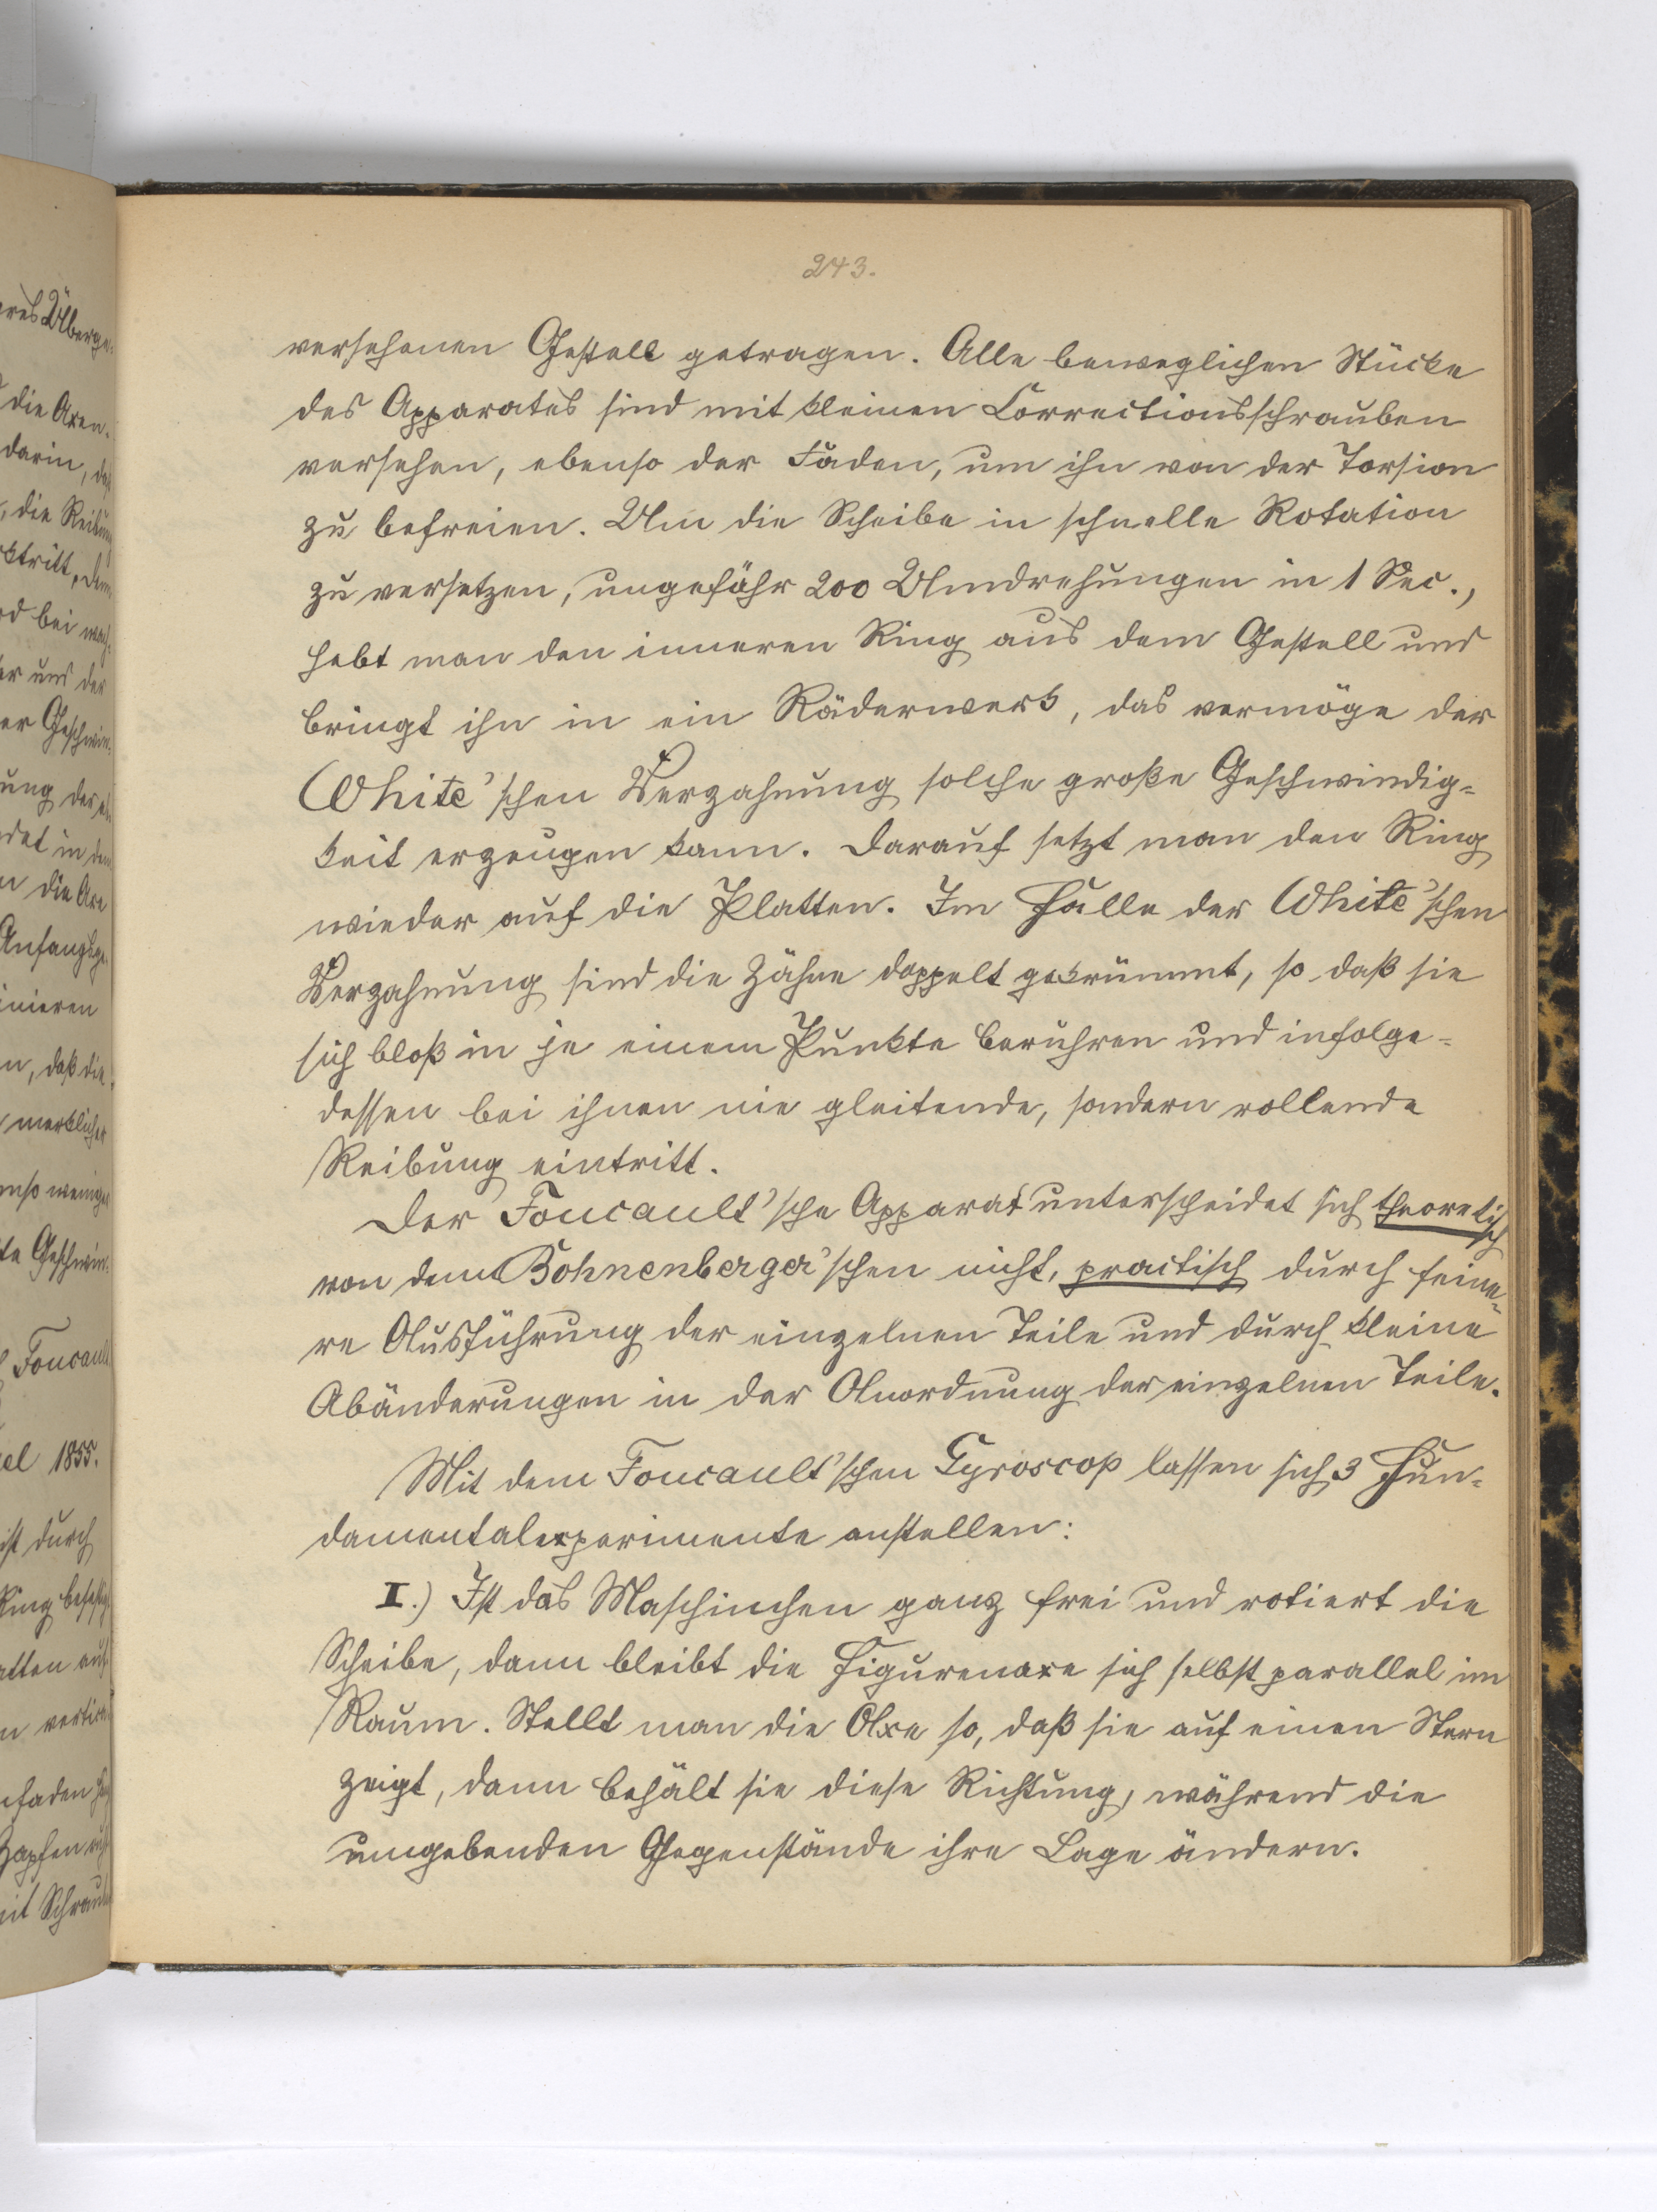 243.
versehenen Gestell getragen. Alle beweglichen Stücke
des Apparates sind mit kleinen Correctionsschrauben
versehen, ebenso der Faden, um ihn von der Torsion
zu befreien. Um die Scheibe in schnelle Rotation
zu versetzen, ungefähr 200 Umdrehungen in 1 Sec.,
hebt man den inneren Ring aus dem Gestell und
bringt ihn in ein Räderwerk, das vermöge der
White'schen Verzahnung solche große Geschwindig=
keit erzeugen kann. Darauf setzt man den Ring
wieder auf die Platten. Im Falle der White'schen
Verzahnung sind die Zähne doppelt gekrümmt, so daß sie
sich bloß in je einem Punkte berühren und infolge=
dessen bei ihnen nie gleitende, sondern rollende
Reibung eintritt.
Der Foucault'sche Apparat unterscheidet sich theoretisch
von dem Bohnenberger'schen nicht, practisch durch feine=
re Ausführung der einzelnen Teile und durch kleine
Abänderungen in der Anordnung der einzelnen Teile.
Mit dem Foucault'schen Gyroscop lassen sich 3 Fun=
damentalexperimente anstellen:
I.) Ist das Maschinchen ganz frei und rotiert die
Scheibe, dann bleibt die Figurenaxe sich selbst parallel im
Raum. Stellt man die Axe so, daß sie auf einen Stern
zeigt, dann behält sie diese Richtung, während die
umgebenden Gegenstände ihre Lage ändern.